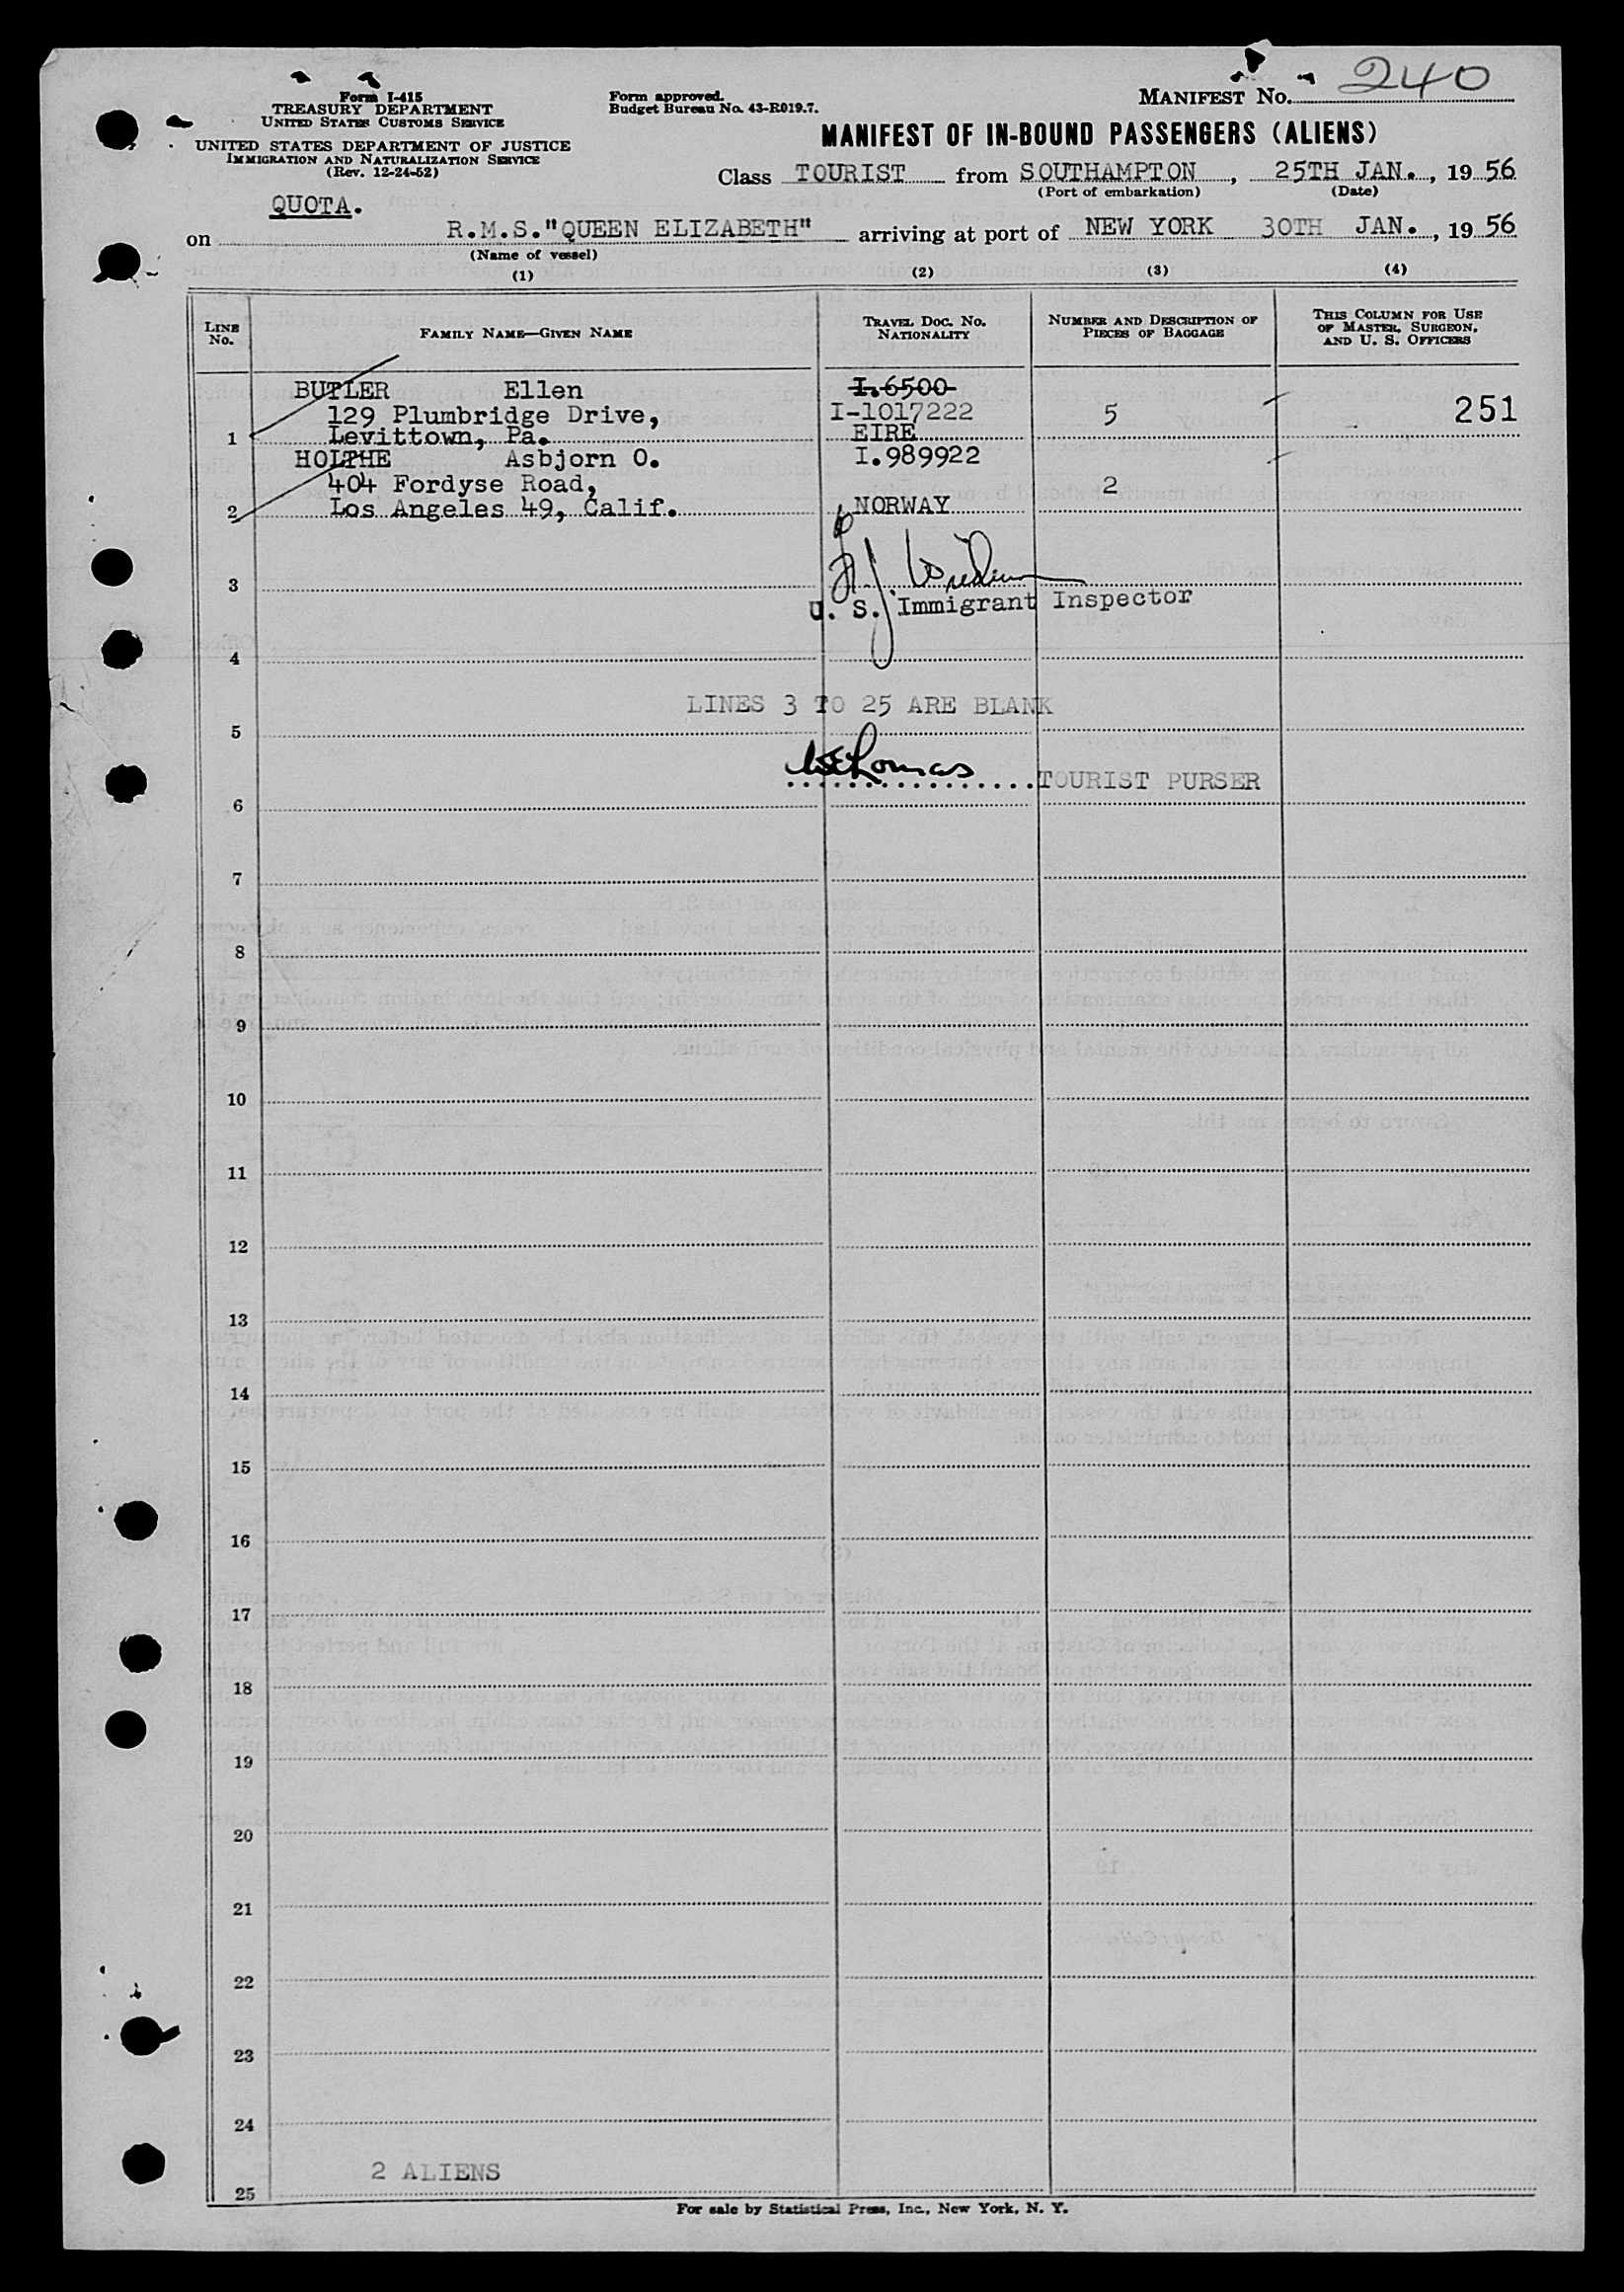 240
Form I-415
TREASURY DEPARTMENT
UNITED STATES CUSTOMS SERVICE
Form approved.
Budget Bureau No. 43-R019.7.
MANIFEST No.
UNITED STATES DEPARTMENT OF JUSTICE
IMMIGRATION AND NATURALIZATION SERVICE
(Rev. 12-24-52)
MANIFEST OF IN-BOUND PASSENGERS (ALIENS)
Class TOURIST from SOUTHAMPTON, 25TH JAN., 19 56
(Port of embarkation) (Date)
QUOTA.
on R.M.S."QUEEN ELIZABETH" arriving at port of NEW YORK 30TH JAN., 19 56
(Name of vessel)
(1) (2) (3) (4)
LINE No. FAMILY NAME—GIVEN NAME TRAVEL DOC. No. NATIONALITY NUMBER AND DESCRIPTION OF PIECES OF BAGGAGE THIS COLUMN FOR USE OF MASTER, SURGEON, AND U. S. OFFICERS
BUTLER Ellen I.6500
129 Plumbridge Drive, I-1017222 5 251
1 Levittown, Pa. EIRE
HOLTHE Asbjorn O. I.989922
404 Fordyse Road, 2
2 Los Angeles 49, Calif. NORWAY
3
U. S. Immigrant Inspector
4
LINES 3 TO 25 ARE BLANK
5
TOURIST PURSER
6
7
8
9
10
11
12
13
14
15
16
17
18
19
20
21
22
23
24
2 ALIENS
25
For sale by Statistical Press, Inc., New York, N. Y.